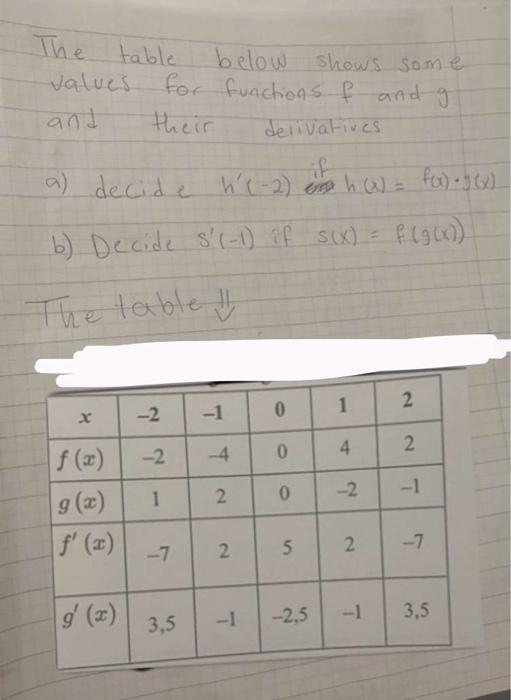 The table below shows some
values for functions f and g
and their derivatives
a) decide h'(-2) if h(x) = f(x)·g(x)
b) Decide s'(-1) if s(x) = f(g(x))
The table ⇓
x -2 -1 0 1 2
f(x) -2 -4 0 4 2
g(x) 1 2 0 -2 -1
f'(x) -7 2 5 2 -7
g'(x) 3,5 -1 -2,5 -1 3,5